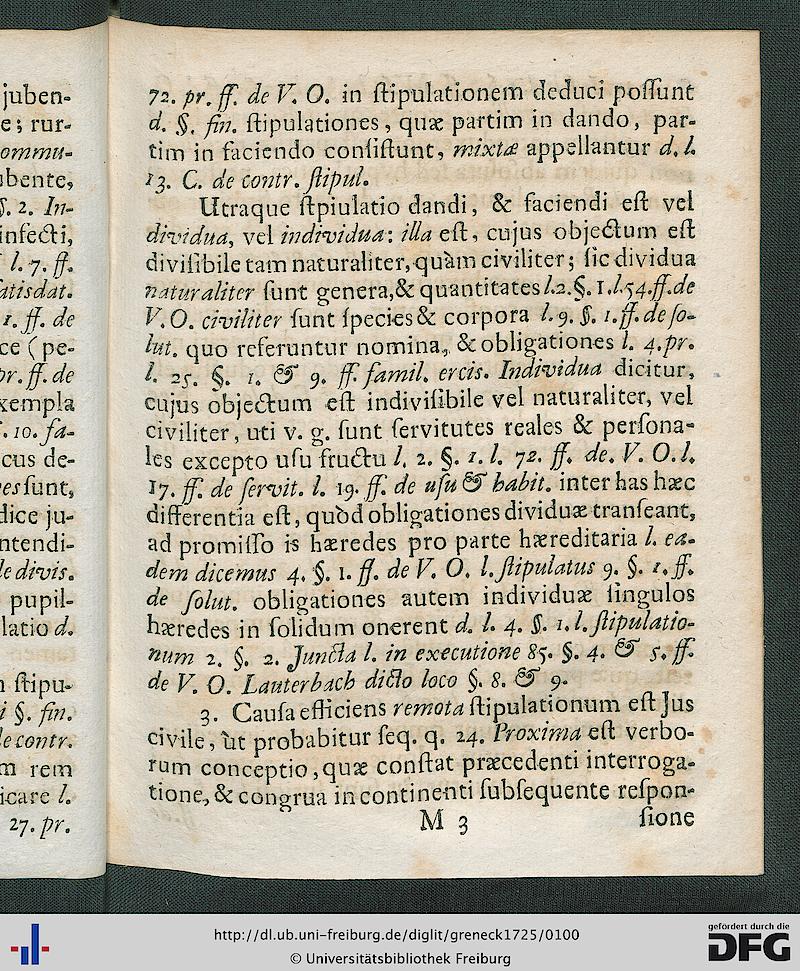 juben-
e; rur-
ommu-
bente,
§. 2. In-
infecti,
l. 7. ff.
atisdat.
1. ff. de
ce (pe-
pr. ff. de
xempla
. 10. fa-
cus de-
es ſunt,
dice ju-
ntendi-
de divis.
pupil-
latio d.
ſtipu-
i §. fin.
le contr.
m rem
icare l.
27. pr.
72. pr. ff. de V. O. in ſtipulationem deduci poſſunt
d. §. fin. ſtipulationes, quæ partim in dando, par-
tim in faciendo conſiſtunt, mixtæ appellantur d. l.
13. C. de contr. ſtipul.
Utraque ſtpiulatio dandi, & faciendi eſt vel
dividua, vel individua: illa eſt, cujus objectum eſt
diviſibile tam naturaliter, quàm civiliter; ſic dividua
naturaliter ſunt genera, & quantitates l. 2. §. 1. l. 54. ff. de
V. O. civiliter ſunt ſpecies & corpora l. 9. §. 1. ff. de ſo-
lut. quo referuntur nomina, & obligationes l. 4. pr.
l. 25. §. 1. & 9. ff. famil. ercis. Individua dicitur,
cujus objectum eſt indiviſibile vel naturaliter, vel
civiliter, uti v. g. ſunt ſervitutes reales & perſona-
les excepto uſu fructu l. 2. §. 1. l. 72. ff. de. V. O. l.
17. ff. de ſervit. l. 19. ff. de uſu & habit. inter has hæc
differentia eſt, quòd obligationes dividuæ tranſeant,
ad promiſſo is hæredes pro parte hæreditaria l. ea-
dem dicemus 4. §. 1. ff. de V. O. l. ſtipulatus 9. §. 1. ff.
de ſolut. obligationes autem individuæ ſingulos
hæredes in ſolidum onerent d. l. 4. §. 1. l. ſtipulatio-
num 2. §. 2. Juncta l. in executione 85. §. 4. & 5. ff.
de V. O. Lauterbach dicto loco §. 8. & 9.
3. Cauſa efficiens remota ſtipulationum eſt Jus
civile, ùt probabitur ſeq. q. 24. Proxima eſt verbo-
rum conceptio, quæ conſtat præcedenti interroga-
tione, & congrua in continenti ſubſequente reſpon-
M 3 ſione
http://dl.ub.uni-freiburg.de/diglit/greneck1725/0100
© Universitätsbibliothek Freiburg
gefördert durch die
DFG